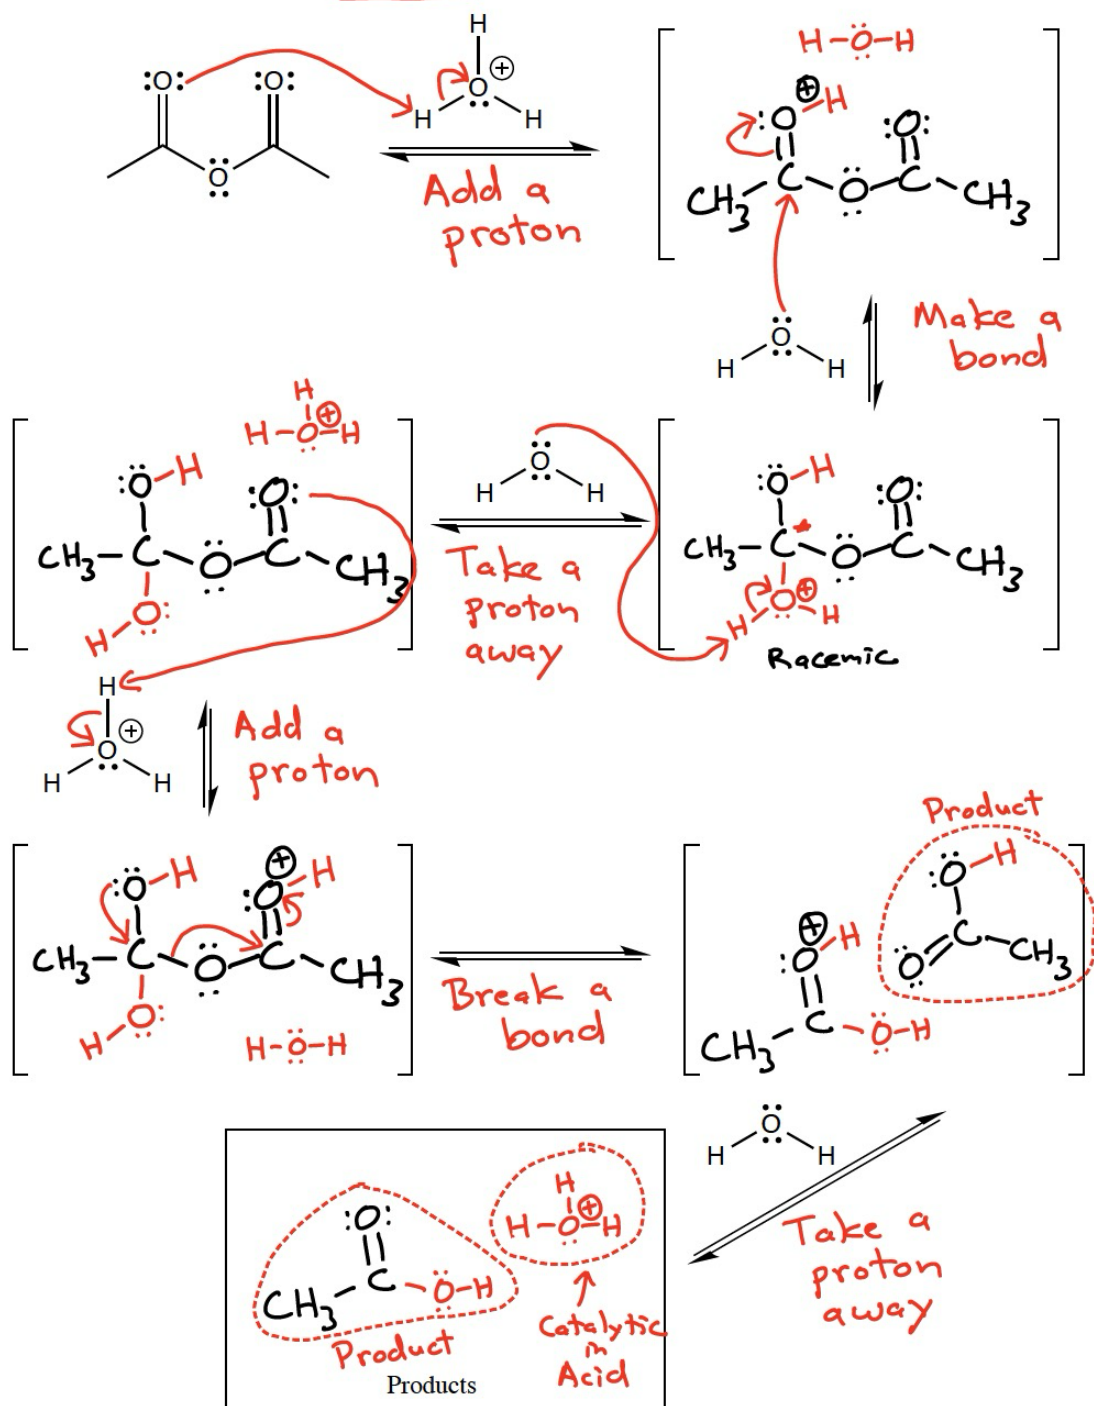 :O: :O: H
O ⊕
H H
O
Add a
proton
H-O-H
⊕
:O-H :O:
CH3 C O C CH3
H O H
Make a
bond
H
H-O-H ⊕
:O-H :O:
CH3-C O C CH3
H O:
H O H
Take a
proton
away
:O-H :O:
CH3-C * O C CH3
H O ⊕ H
Racemic
H
O ⊕
H H
Add a
proton
⊕
:O-H :O-H
CH3-C O C CH3
H O:
H-O-H
Break a
bond
Product
O-H
⊕
:O-H O C CH3
CH3 C -O-H
H O H
Take a
proton
away
:O:
CH3 C -O-H
Product
H
H-O-H ⊕
Catalytic
in
Acid
Products